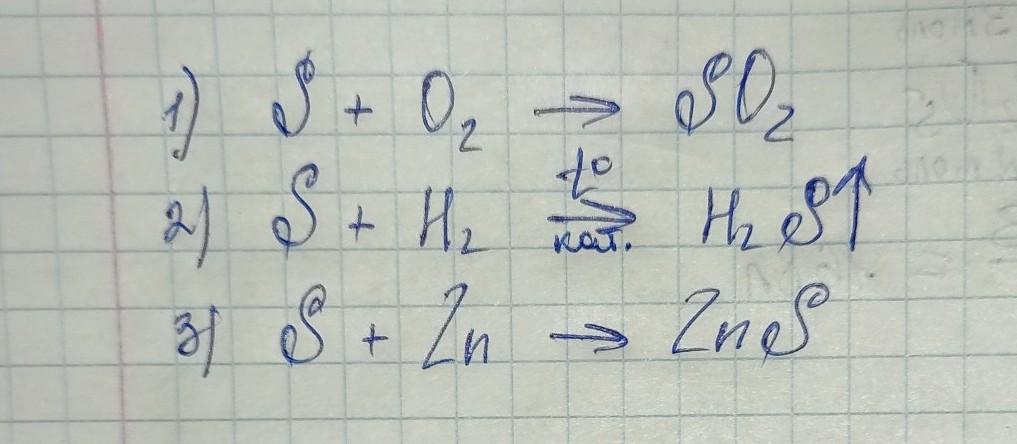 1) S + O₂ → SO₂
2) S + H₂ →[t° кат.] H₂S↑
3) S + Zn → ZnS